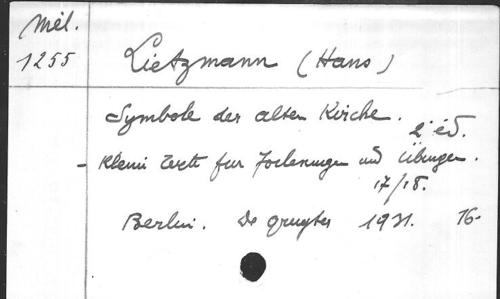 Mél.
1255
Lietzmann (Hans)
Symbole der alten Kirche.
2e éd.
- Kleine Texte fur Vorlesungen und Übungen.
17/18.
Berlin. De Gruyter 1931. 16-